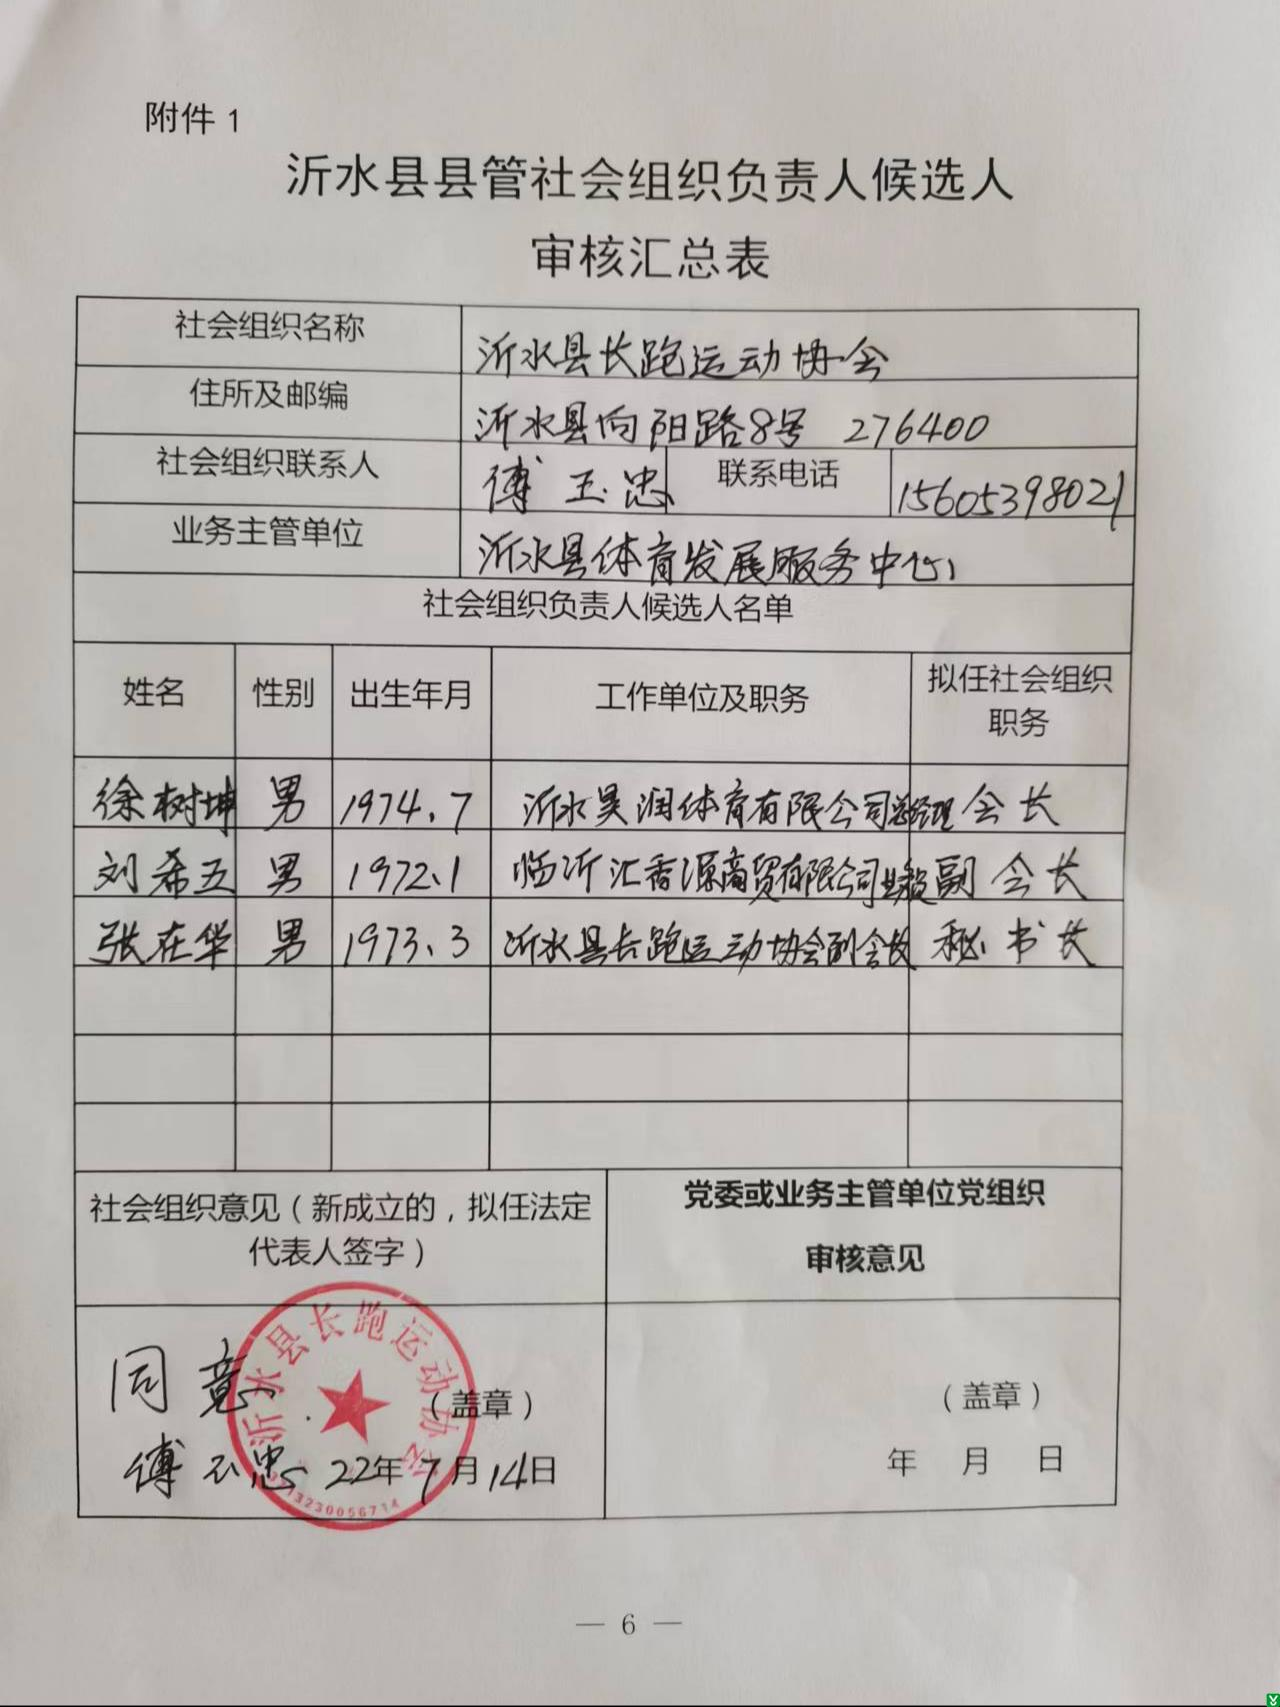 附件 1
沂水县县管社会组织负责人候选人
审核汇总表
社会组织名称 沂水县长跑运动协会
住所及邮编 沂水县向阳路8号 276400
社会组织联系人 傅玉忠 联系电话 15605398021
业务主管单位 沂水县体育发展服务中心
社会组织负责人候选人名单
姓名 性别 出生年月 工作单位及职务 拟任社会组织
职务
徐树坤 男 1974.7 沂水昊润体育有限公司总经理 会长
刘希五 男 1972.1 临沂汇香源商贸有限公司 副会长
张在华 男 1973.3 沂水县长跑运动协会副会长 秘书长
社会组织意见（新成立的，拟任法定
代表人签字）
党委或业务主管单位党组织
审核意见
沂水县长跑运动协会
同意
（盖章）
傅玉忠 22年7月14日
3713230056714
（盖章）
年 月 日
— 6 —